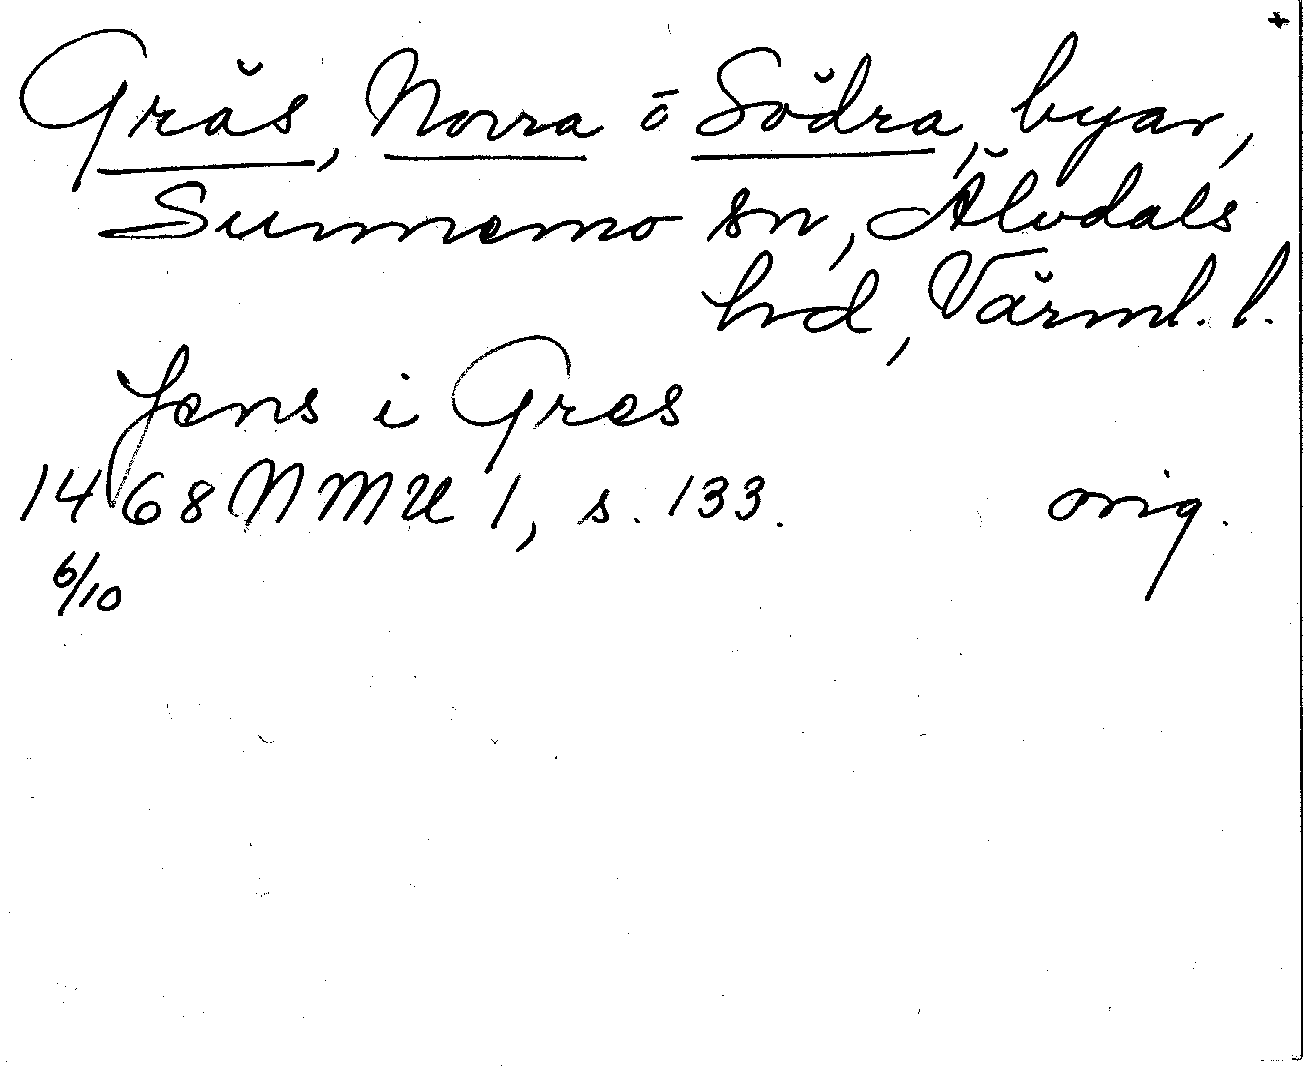 +
Gräs, Norra o Södra, byar,
Sunnemo sn, Älvdals
hd, Värml. l.
Jens i Gres
1468 NMU 1, s. 133. orig.
6/10